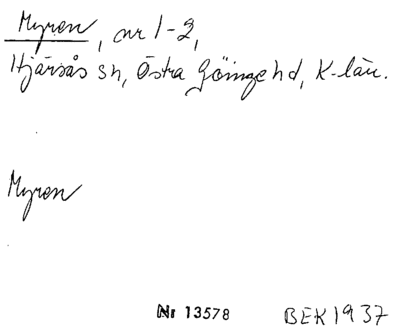 Myren, nr 1-2,
Hjärsås sn, Östra Göinge hd, K-län.
Myren
Nr 13578 BEK 1937